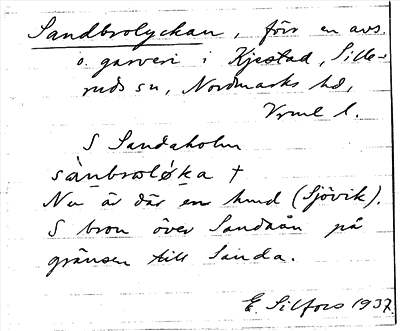 Sandbrolyckan, förr en avs.
o. garveri i Kjestad, Sille-
ruds sn, Nordmarks hd,
Vrml l.
S Sandaholm
sànbroløka †
Nu är där en hmd (Sjövik).
S bron över Sandaån på
gränsen till Sanda.
E. Silfors 1937.